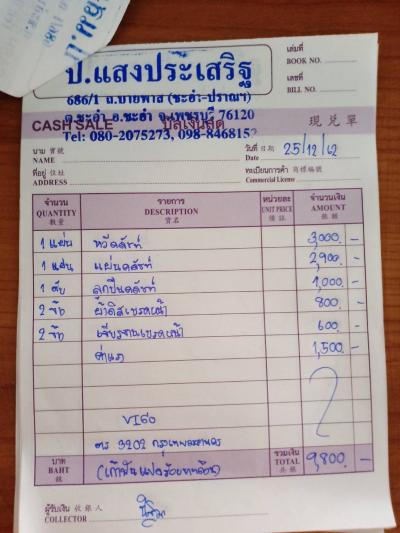 ป.แสงประเสริฐ
686/1 ถ.บายพาส (ชะอำ-ปราณฯ)
ต.ชะอำ อ.ชะอำ จ.เพชรบุรี 76120
Tel: 080-2075273, 098-8468152
เล่มที่
BOOK NO.
เลขที่
BILL NO.
CASH SALE บิลเงินสด 現兌單
นาม 寶號
NAME
วันที่ 日期 25/12/62
Date
ที่อยู่ 住址
ADDRESS
ทะเบียนการค้า 商標編號
Commercial License
จำนวน รายการ หน่วยละ จำนวนเงิน
QUANTITY DESCRIPTION UNIT PRICE AMOUNT
數量 貨名
1 แผ่น หวีคลัทช์ 3,000.-
1 แผ่น แผ่นคลัทช์ 2,900.-
1 ลูกปืนคลัทช์ 1,000.-
2 ผ้าดิสเบรคหน้า 800.-
2 เจียรจานเบรคหน้า 600.-
ค่าแรง 1,500.-
VIGO
3202 กรุงเทพมหานคร
บาท รวมเงิน
BAHT (เก้าพันแปดร้อยบาทถ้วน) TOTAL 9,800.-
ผู้รับเงิน 收銀人
COLLECTOR